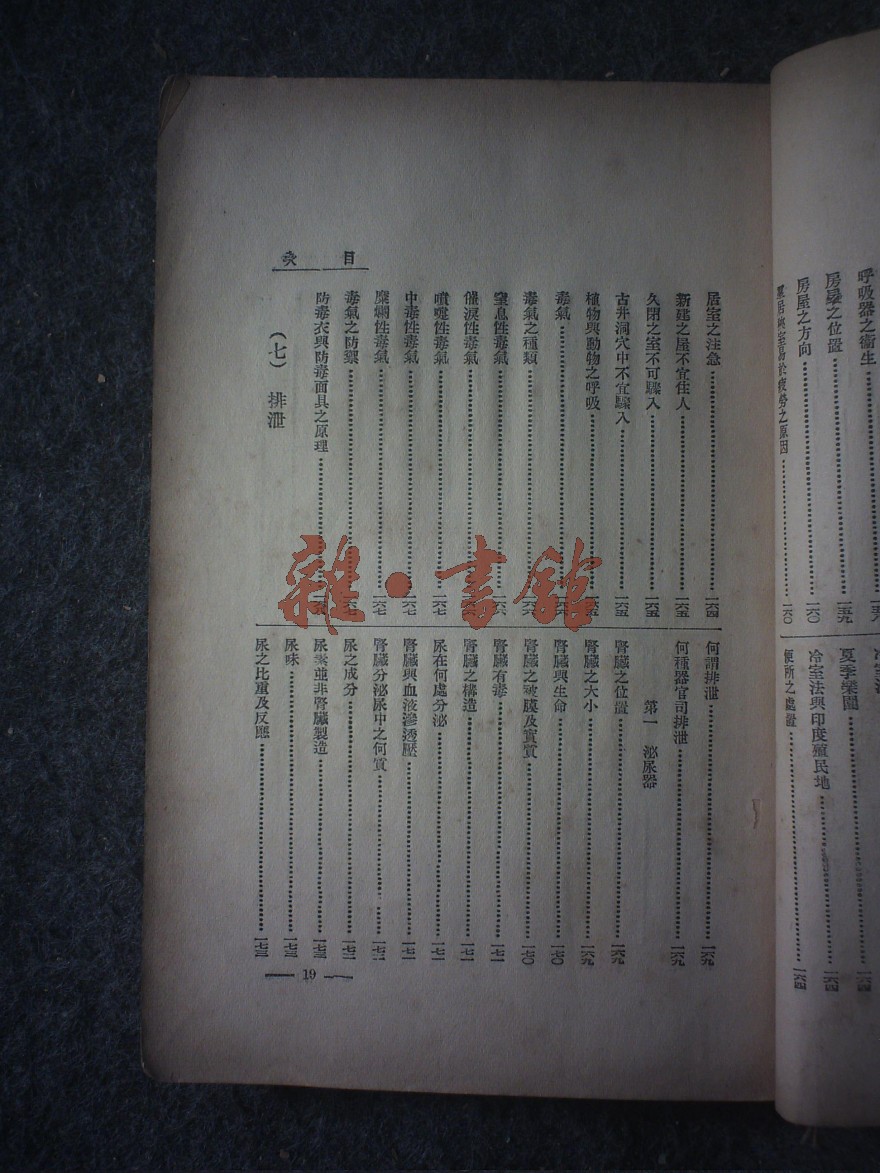 呼吸器之衞生
房屋之位置
房屋之方向……一六〇
夏季樂園……一六四
冷室法與印度殖民地……一六四
便所之處置……一六四
目次
居室之注急……一六四
新建之屋不宜住人……一六五
久閉之室不可驟入……一六五
古井洞穴中不宜驟入……一六五
植物與動物之呼吸……一六五
毒氣……一六六
毒氣之種類……一六六
窒息性毒氣
催淚性毒氣
噴嚏性毒氣……一六七
中毒性毒氣……一六七
糜爛性毒氣……一六七
毒氣之防禦
防毒衣與防毒面具之原理
(七) 排泄
何謂排泄……一六九
何種器官司排泄……一六九
第一 泌尿器
腎臟之位置……一六九
腎臟之大小……一六九
腎臟與生命……一七〇
腎臟之被膜及實質……一七〇
腎臟有毒……一七一
腎臟之構造……一七一
尿在何處分泌……一七一
腎臟與血液滲透壓……一七一
腎臟分泌尿中之何質……一七二
尿之成分……一七二
尿素並非腎臟製造……一七三
尿味……一七三
尿之比重及反應……一七三
— 19 —
雜·書館